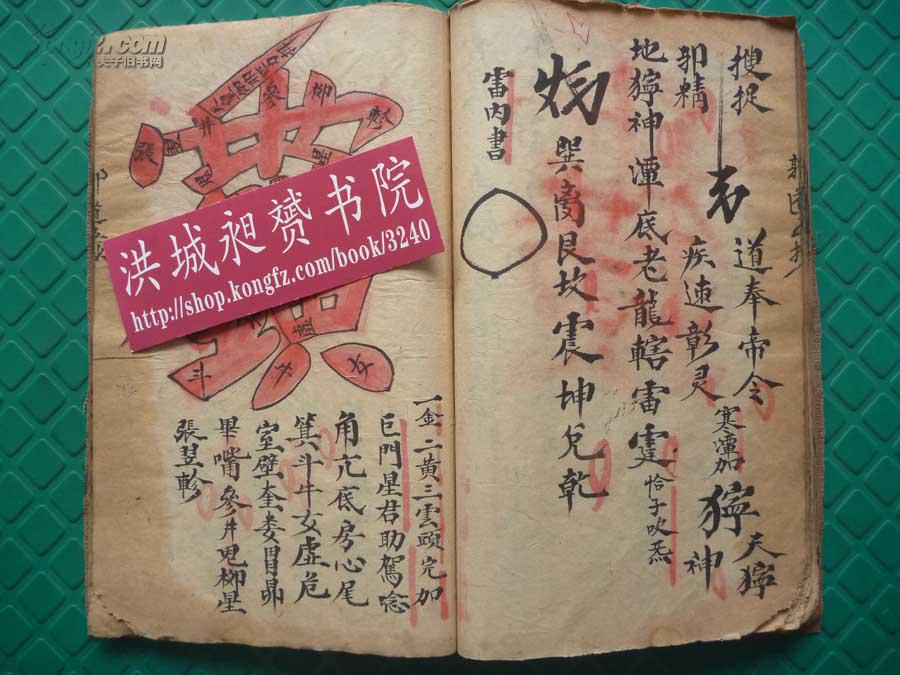 搜捉
道奉帝令
寒潭加
獰神
天獰
卯精
疾速彰灵
地獰神潭底老龍轄雷霆
恰子吹炁
巽离艮坎震坤兌乾
雷內書
一金二黄三雲頭完加
巨門星君助駕唸
角亢底房心尾
箕斗牛女虛危
室壁奎娄胃昴
畢嘴參井鬼柳星
張翌軫
張
井
參
柳
星
虛
斗
牛
女
洪城昶赟书院
http://shop.kongfz.com/book/3240
kongfz.com
孔夫子旧书网